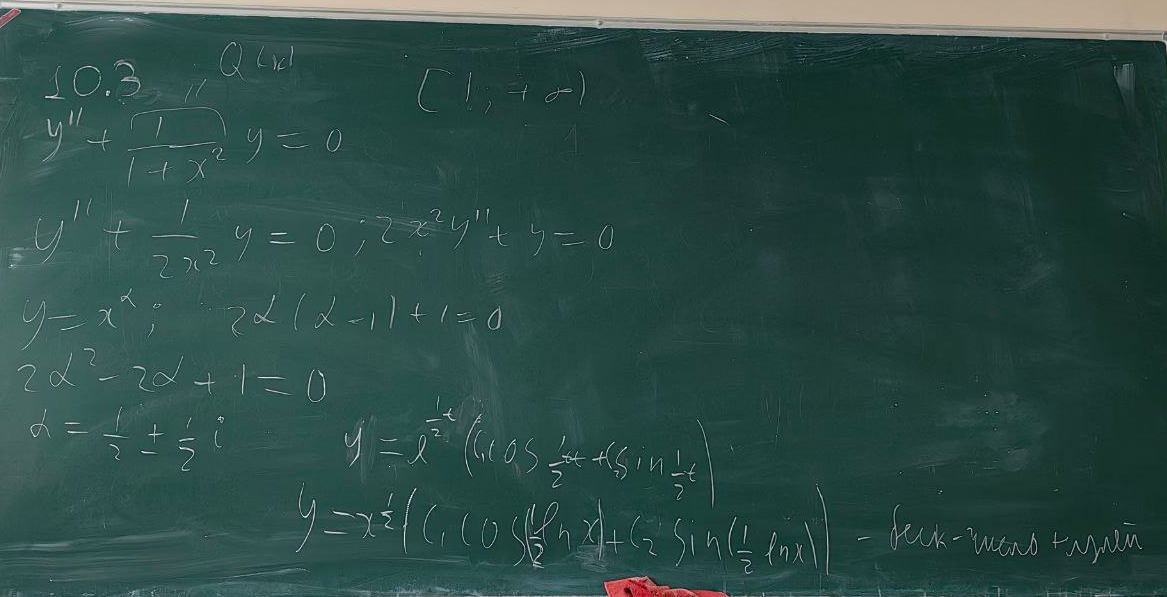 10.3 Q(x) [1; +∞)
y'' + 1/(1+x²) y = 0
y'' + 1/(2x²) y = 0 ; 2x²y'' + y = 0
y = x^α ; 2α(α-1) + 1 = 0
2α² - 2α + 1 = 0
α = 1/2 ± 1/2 i
y = e^(1/2 t) (C₁cos 1/2 t + C₂sin 1/2 t)
y = x^(1/2) (C₁cos(1/2 ln x) + C₂ sin(1/2 ln x)) - беск-число нулей